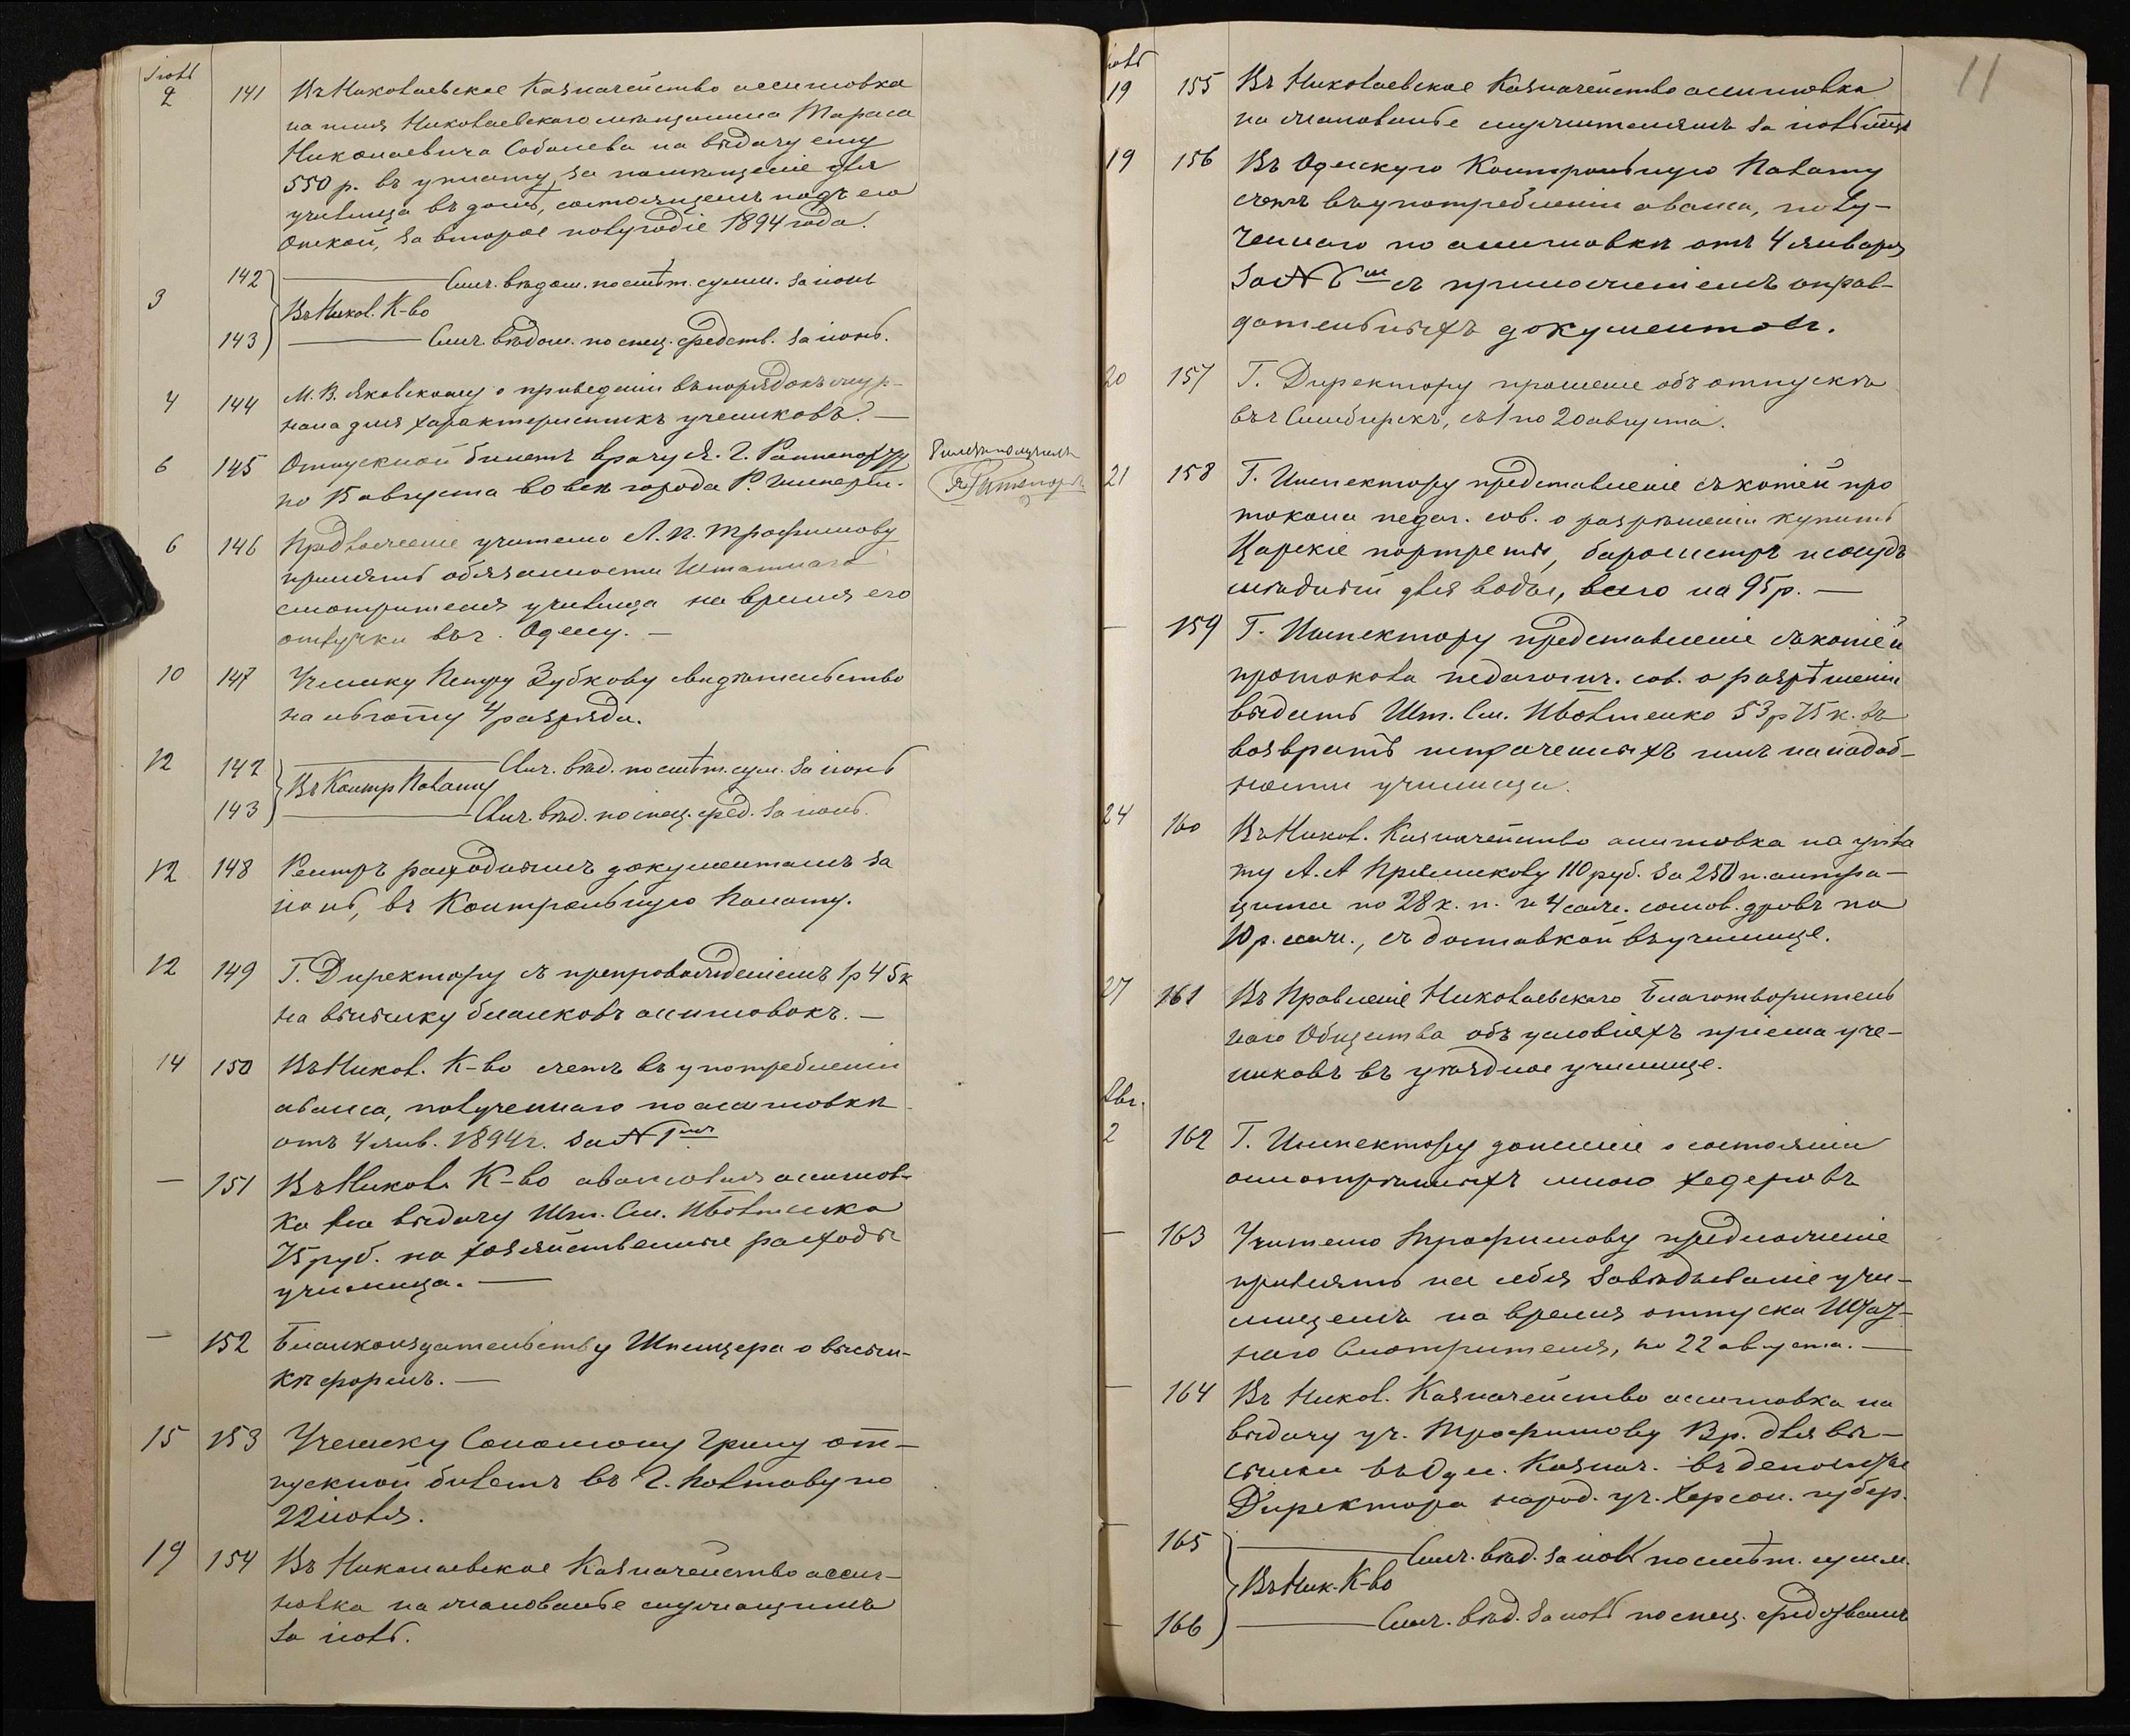 Іюль
2 141 Въ Николаевское Казначейство ассигновка
на имя Николаевскаго мѣщанина Тараса
Николаевича Соболева на выдачу ему
550 р. въ уплату за помѣщеніе для
училища въ домѣ, состоящемъ подъ его
опекой, за второе полугодіе 1894 года.
142 Слич. вѣдом. по смѣт. сумм. за іюнь
3 Въ Никол. К-во
143 Слич. вѣдом. по спец. средств. за іюнь.
4 144 М. В. Яковскому о приведеніи въ порядокъ жур-
нала для характеристикъ учениковъ. —
6 145 Отпускной билетъ врачу Я. Г. Раппепорту
по 15 августа во всѣ города Р. Имперіи.
Билетъ получилъ
6 146 Предложеніе учителю Л. П. Трофимову
принять обязанности Штатнаго
смотрителя училища на время его
отлучки въ г. Одессу. —
10 147 Ученику Петру Зубкову свидѣтельство
на льготу 4 разряда.
12 142 Слич. вѣд. по смѣт. сум. за іюнь
Въ Контр Палату
143 Слич. вѣд. по спец. сред. за іюнь.
12 148 Реестръ расходнымъ документамъ за
іюнь, въ Контрольную Палату.
12 149 Г. Директору съ препровожденіемъ 1 р 45 к
на высылку бланковъ ассигновокъ. —
14 150 Въ Никол. К-во счетъ въ употребленіи
аванса, полученнаго по ассигновкѣ
отъ 4 янв. 1894 г. за № 1мъ
— 151 Въ Никол. К-во авансовая ассигнов-
ка на выдачу Шт. См. Иволтенко
75 руб. на хозяйственные расходы
училища. —
— 152 Бланкоиздательству Шпицера о высыл-
кѣ формъ. —
15 153 Ученику Соломону Грину от-
пускной билетъ въ г. Полтаву по
22 іюля.
19 154 Въ Николаевское Казначейство ассиг-
новка на жалованье служащимъ
за іюль.
11
іюль
19 155 Въ Николаевское Казначейство ассигновка
на жалованье служителямъ за іюль мѣц
19 156 Въ Одесскую Контрольную Палату
счетъ въ употребленіи аванса, полу-
ченнаго по ассигновкѣ отъ 4 января
за № 6мъ съ приложеніемъ оправ-
дательныхъ документовъ.
20 157 Г. Директору прошеніе объ отпускѣ
въ г. Симбирскъ, съ 1 по 20 августа.
21 158 Г. Инспектору представленіе съ копіей про
токола педаг. сов. о разрѣшеніи купить
Царскіе портреты, барометръ и сосудъ
мѣдный для воды, всего на 95 р. —
— 159 Г. Инспектору представленіе съ копіей
протокола педагогич. сов. о разрѣшеніи
выдать Шт. См. Иволтенко 53 р 75 к. въ
возвратъ истраченныхъ имъ на надоб-
ности училища.
24 160 Въ Никол. Казначейство ассигновка на упла
ту А. А Прямикову 110 руб. за 250 п. антра-
цита по 28 к. п. и 4 саж. сосов. дровъ по
10 р. саж., съ доставкой въ училище.
27 161 Въ Правленіе Николаевскаго Благотворитель
наго Общества объ условіяхъ пріема уче-
никовъ въ уѣздное училище.
Авг.
2 162 Г. Инспектору донесеніе о состояніи
осмотрѣнныхъ мною хедеровъ
— 163 Учителю Трофимову предложеніе
принять на себя завѣдываніе учи-
лищемъ на время отпуска Штат-
наго Смотрителя, по 22 августа. —
— 164 Въ Никол. Казначейство ассигновка на
выдачу уч. Трофимову 13 р. для вы-
сылки въ Одес. Казнач. въ депозиты
Директора народ. уч. Херсон. губер.
— 165 Слич. вѣд. за іюль по смѣт. сумм.
Въ Ник. К-во
— 166 Слич. вѣд. за іюль по спец. средствамъ